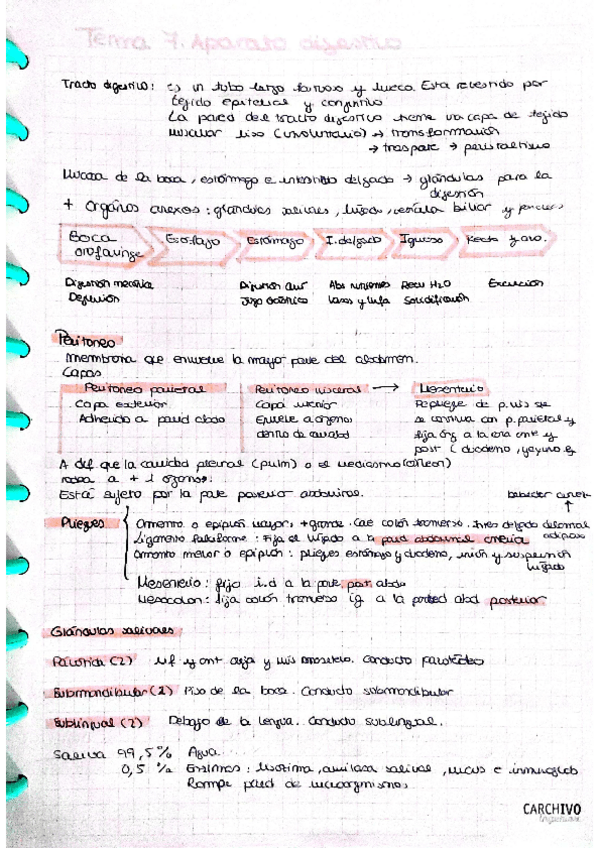 Tema 7. Aparato digestivo
Tracto digestivo: es un tubo largo fibroso y hueco. Esta revestido por
tejido epitelial y conjuntivo
La pared del tracto digestivo tiene una capa de tejido
muscular liso (involuntario) → transformación
→ trasporte → peristaltismo
Mucosa de la boca, estómago e intestino delgado → glándulas para la
digestión
+ Organos anexos: glandulas salivares, higado, vesicula biliar y pancreas
Boca orofaringe
Esofago
Estómago
I. delgado
I grueso
Recto y ano.
Digestion mecanica
Deglución
Digestion
Jugo Gastrico
Abs nutrientes
sangre y linfa
Recu H2O
Solidificación
Excrecion
Peritoneo
membrana que envuelve la mayor parte del abdomen.
Capas
Peritoneo parietal
Capa exterior
Adherido a pared abdo
Peritoneo visceral →
Capa interior
Envuelve a organos
dentro de cavidad
Mesenterio
Repliegue de p. vis que
se continua con p. parietal y
fija órg a la cara ant y
post (duodeno, yeyuno e
A dif que la cavidad pleural (pulm) o el mediastino (corazon)
rodea a + 1 organo.
Está sujeto por la parte posterior abdominal.
Pliegues
Omento o epiplon mayor, + grande. Cae colon transverso. Intes delgado
adiposo
Ligamento falciforme: Fija el higado a la pared abdominal anterior
Omento menor o epiplon: pliegues estómago y duodeno, unión y suspensión
higado
Mesenterio: fija i.d a la parte post. abdo
Mesocolon: fija colón transverso i.g. a la pared abd posterior
Glándulas salivares
Parotida (2) Inf y ant oreja y mus masetero. Conducto parotideo
Submandibular (2) Piso de la boca. Conducto submandibular
Sublingual (2) Debajo de la lengua. Conducto sublingual.
Saliva 99,5% Agua
0,5 % Enzimas: lisozima, amilasa salival, mucus e inmunoglob
Rompe pared de microorganismos
CARCHIVO